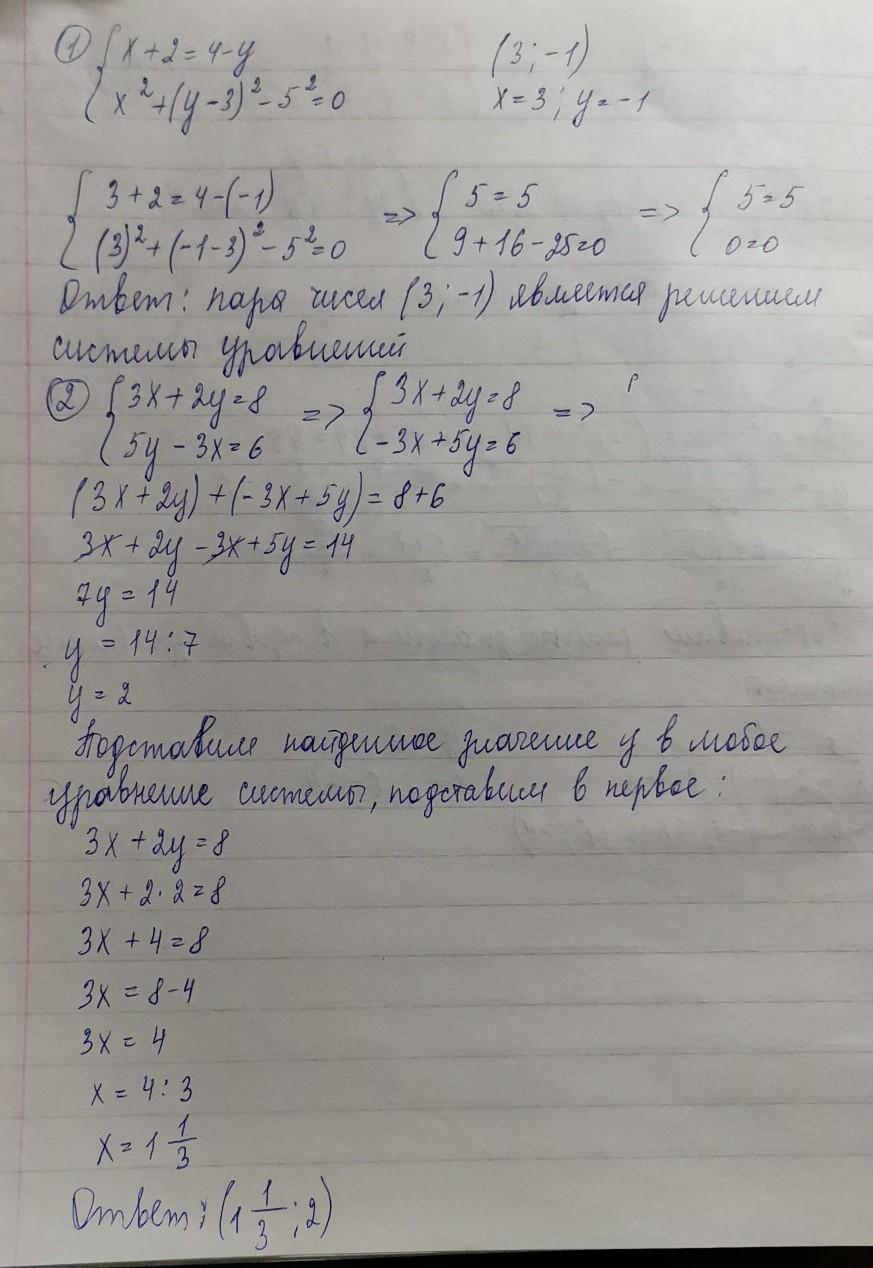 ① { x + 2 = 4 - y    (3 ; -1)
x² + (y - 3)² - 5² = 0    x = 3 ; y = -1
{ 3 + 2 = 4 - (-1) => { 5 = 5 => { 5 = 5
(3)² + (-1 - 3)² - 5² = 0    9 + 16 - 25 = 0    0 = 0
Ответ: пара чисел (3 ; -1) является решением
системы уравнений
② { 3x + 2y = 8 => { 3x + 2y = 8 =>
5y - 3x = 6    -3x + 5y = 6
(3x + 2y) + (-3x + 5y) = 8 + 6
3x + 2y - 3x + 5y = 14
7y = 14
y = 14 : 7
y = 2
Подставим найденное значение y в любое
уравнение системы, подставим в первое :
3x + 2y = 8
3x + 2 · 2 = 8
3x + 4 = 8
3x = 8 - 4
3x = 4
x = 4 : 3
x = 1 1/3
Ответ : (1 1/3 ; 2)